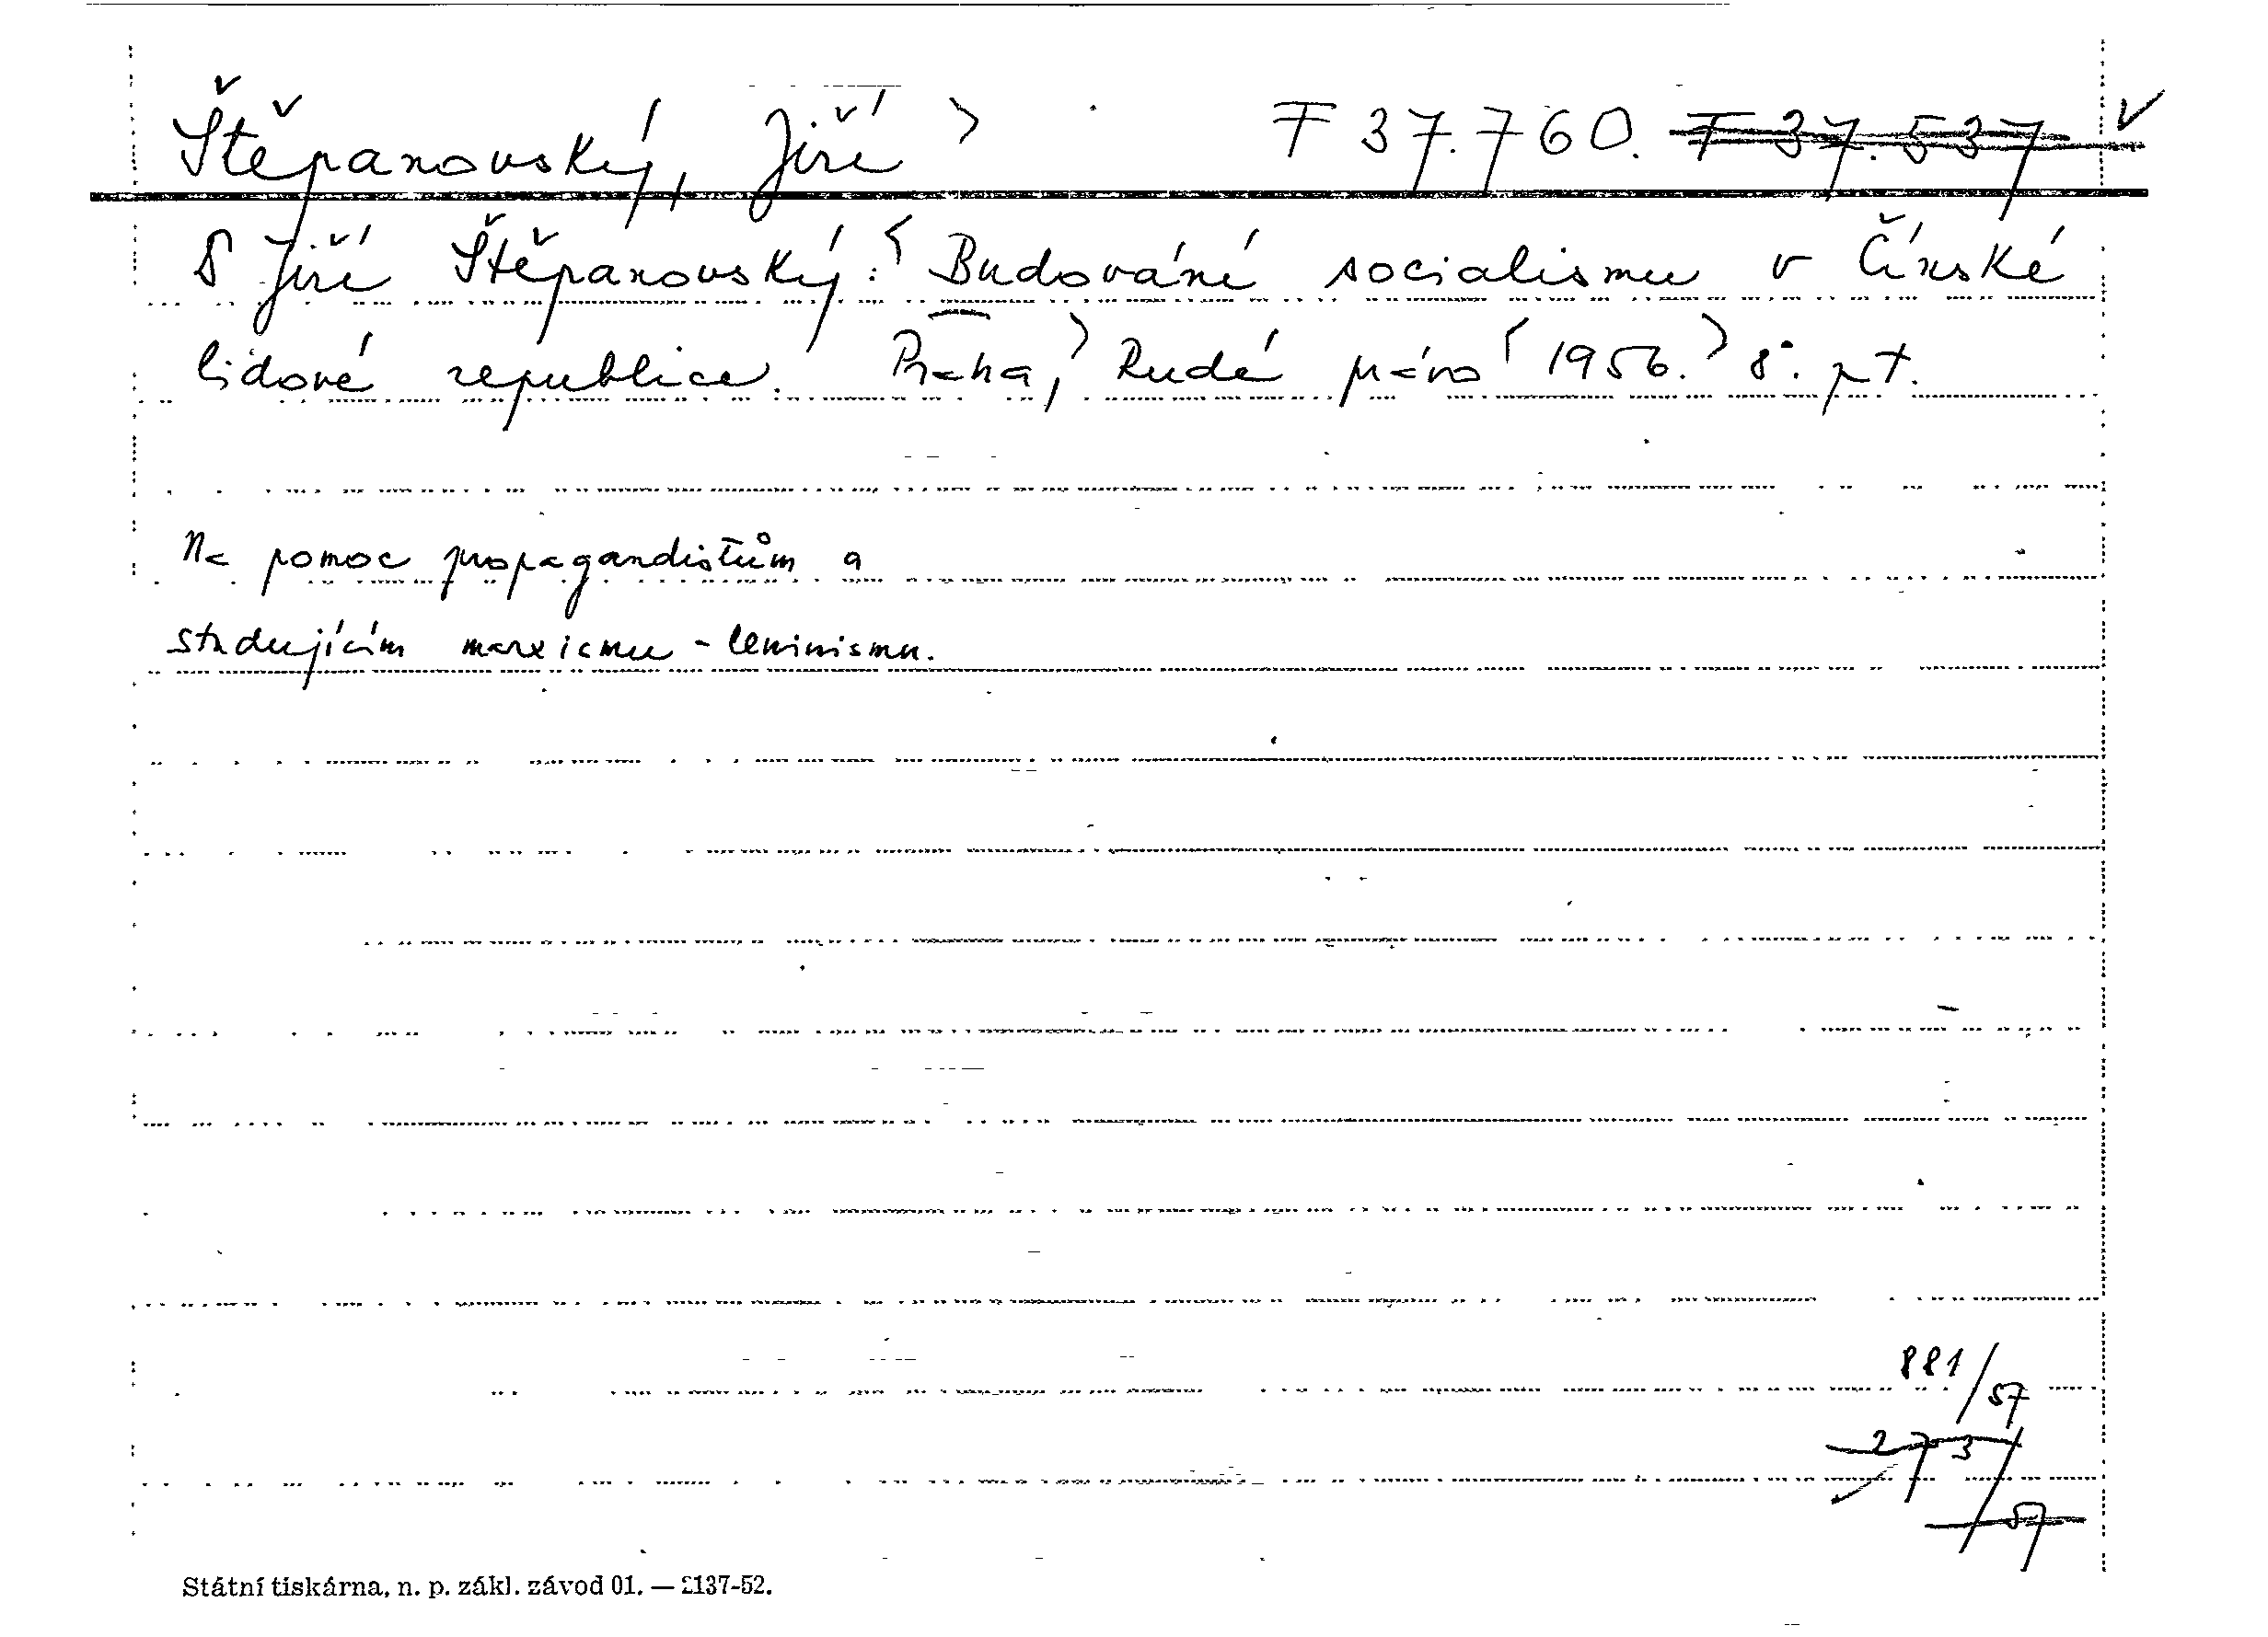 Štěpanovský, Jiří > F 37.760. F 37.537 v
Jiří Štěpanovský: Budování socialismu v Čínské
lidové republice. Praha, Rudé právo 1956. 8°. pt.
Na pomoc propagandistům a
studujícím marxismu-leninismu.
881/57
273/57
Státní tiskárna, n. p. zákl. závod 01. — 2137-52.